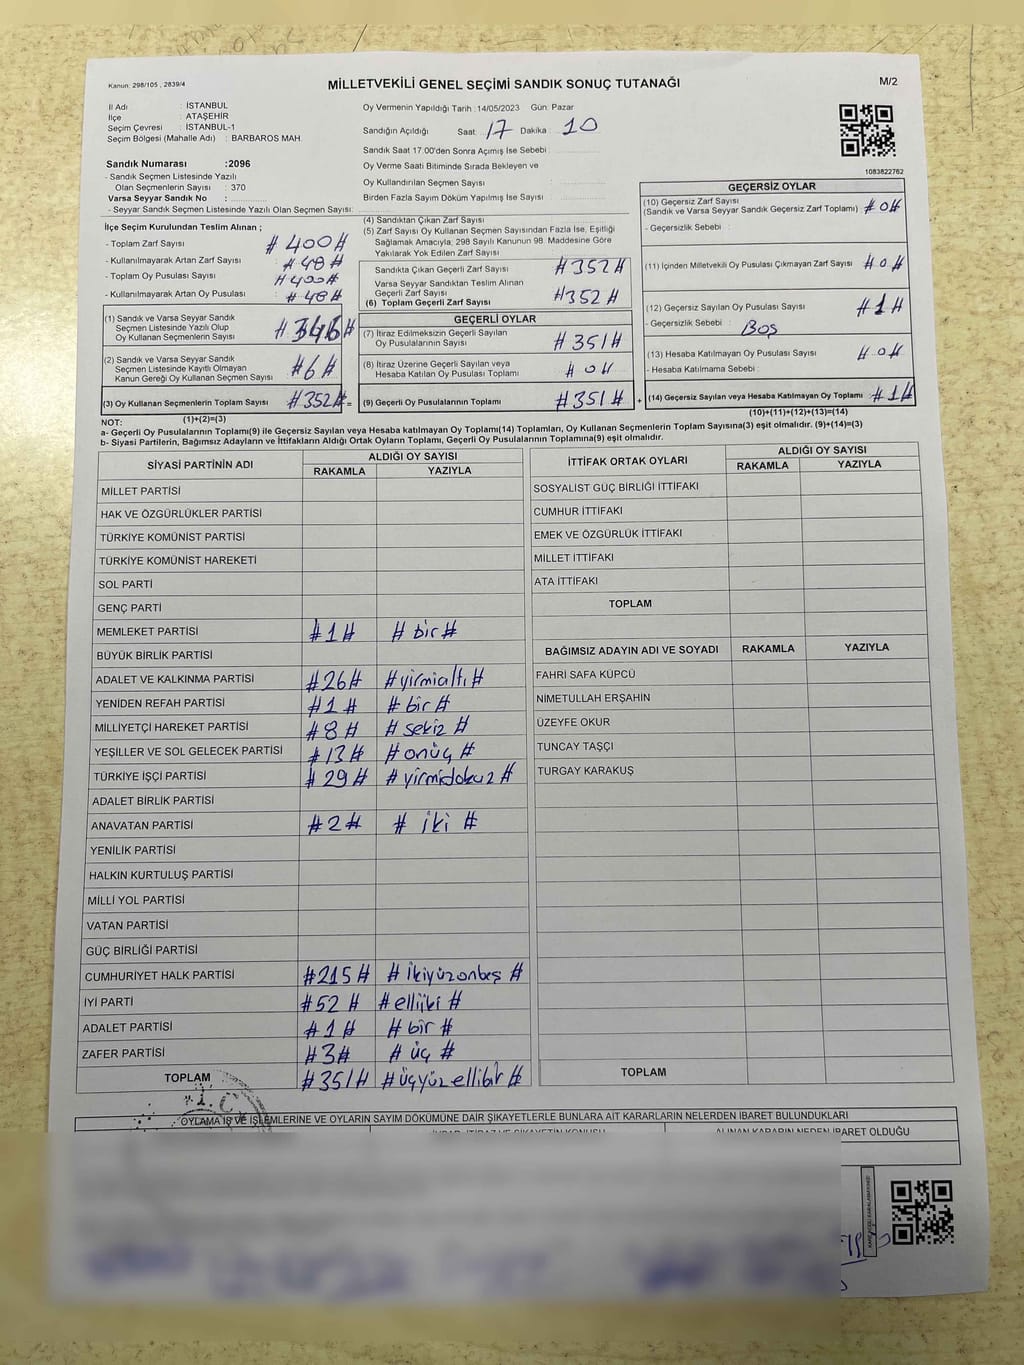 Kanun: 298/105 , 2839/4
MİLLETVEKİLİ GENEL SEÇİMİ SANDIK SONUÇ TUTANAĞI
M/2
İl Adı : İSTANBUL
İlçe : ATAŞEHİR
Seçim Çevresi : İSTANBUL-1
Seçim Bölgesi (Mahalle Adı) : BARBAROS MAH.
Sandık Numarası :2096
- Sandık Seçmen Listesinde Yazılı
Olan Seçmenlerin Sayısı : 370
Varsa Seyyar Sandık No :
- Seyyar Sandık Seçmen Listesinde Yazılı Olan Seçmen Sayısı:
Oy Vermenin Yapıldığı Tarih : 14/05/2023 Gün: Pazar
Sandığın Açıldığı Saat: 17 Dakika : 10
Sandık Saat 17:00'den Sonra Açımış İse Sebebi :
Oy Verme Saati Bitiminde Sırada Bekleyen ve
Oy Kullandırılan Seçmen Sayısı
Birden Fazla Sayım Döküm Yapılmış İse Sayısı :
1083822762
İlçe Seçim Kurulundan Teslim Alınan ;
- Toplam Zarf Sayısı #400#
- Kullanılmayarak Artan Zarf Sayısı #48#
- Toplam Oy Pusulası Sayısı #400#
- Kullanılmayarak Artan Oy Pusulası #48#
(1) Sandık ve Varsa Seyyar Sandık
Seçmen Listesinde Yazılı Olup
Oy Kullanan Seçmenlerin Sayısı #346#
(2) Sandık ve Varsa Seyyar Sandık
Seçmen Listesinde Kayıtlı Olmayan
Kanun Gereği Oy Kullanan Seçmen Sayısı #6#
(3) Oy Kullanan Seçmenlerin Toplam Sayısı #352# =
(1)+(2)=(3)
(4) Sandıktan Çıkan Zarf Sayısı
(5) Zarf Sayısı Oy Kullanan Seçmen Sayısından Fazla İse, Eşitliği
Sağlamak Amacıyla, 298 Sayılı Kanunun 98. Maddesine Göre
Yakılarak Yok Edilen Zarf Sayısı
Sandıkta Çıkan Geçerli Zarf Sayısı #352#
Varsa Seyyar Sandıktan Teslim Alınan
Geçerli Zarf Sayısı
(6) Toplam Geçerli Zarf Sayısı #352#
GEÇERLİ OYLAR
(7) İtiraz Edilmeksizin Geçerli Sayılan
Oy Pusulalarının Sayısı #351#
(8) İtiraz Üzerine Geçerli Sayılan veya
Hesaba Katılan Oy Pusulası Toplamı #0#
(9) Geçerli Oy Pusulalarının Toplamı #351# +
GEÇERSİZ OYLAR
(10) Geçersiz Zarf Sayısı
(Sandık ve Varsa Seyyar Sandık Geçersiz Zarf Toplamı) #0#
- Geçersizlik Sebebi :
(11) İçinden Milletvekili Oy Pusulası Çıkmayan Zarf Sayısı #0#
(12) Geçersiz Sayılan Oy Pusulası Sayısı #1#
- Geçersizlik Sebebi : Boş
(13) Hesaba Katılmayan Oy Pusulası Sayısı #0#
- Hesaba Katılmama Sebebi :
(14) Geçersiz Sayılan veya Hesaba Katılmayan Oy Toplamı #1#
(10)+(11)+(12)+(13)=(14)
NOT:
a- Geçerli Oy Pusulalarının Toplamı(9) ile Geçersiz Sayılan veya Hesaba katılmayan Oy Toplamı(14) Toplamları, Oy Kullanan Seçmenlerin Toplam Sayısına(3) eşit olmalıdır. (9)+(14)=(3)
b- Siyasi Partilerin, Bağımsız Adayların ve İttifakların Aldığı Ortak Oyların Toplamı, Geçerli Oy Pusulalarının Toplamına(9) eşit olmalıdır.
SİYASİ PARTİNİN ADI ALDIĞI OY SAYISI
RAKAMLA YAZIYLA
MİLLET PARTİSİ
HAK VE ÖZGÜRLÜKLER PARTİSİ
TÜRKİYE KOMÜNİST PARTİSİ
TÜRKİYE KOMÜNİST HAREKETİ
SOL PARTİ
GENÇ PARTİ
MEMLEKET PARTİSİ #1# #bir#
BÜYÜK BİRLİK PARTİSİ
ADALET VE KALKINMA PARTİSİ #26# #yirmialtı#
YENİDEN REFAH PARTİSİ #1# #bir#
MİLLİYETÇİ HAREKET PARTİSİ #8# #sekiz#
YEŞİLLER VE SOL GELECEK PARTİSİ #13# #onüç#
TÜRKİYE İŞÇİ PARTİSİ #29# #yirmidokuz#
ADALET BİRLİK PARTİSİ
ANAVATAN PARTİSİ #2# #iki#
YENİLİK PARTİSİ
HALKIN KURTULUŞ PARTİSİ
MİLLİ YOL PARTİSİ
VATAN PARTİSİ
GÜÇ BİRLİĞİ PARTİSİ
CUMHURİYET HALK PARTİSİ #215# #ikiyüzonbeş#
İYİ PARTİ #52# #elliiki#
ADALET PARTİSİ #1# #bir#
ZAFER PARTİSİ #3# #üç#
TOPLAM #351# #üçyüzellibir#
İTTİFAK ORTAK OYLARI ALDIĞI OY SAYISI
RAKAMLA YAZIYLA
SOSYALIST GÜÇ BİRLİĞİ İTTİFAKI
CUMHUR İTTİFAKI
EMEK VE ÖZGÜRLÜK İTTİFAKI
MİLLET İTTİFAKI
ATA İTTİFAKI
TOPLAM
BAĞIMSIZ ADAYIN ADI VE SOYADI RAKAMLA YAZIYLA
FAHRİ SAFA KÜPCÜ
NİMETULLAH ERŞAHIN
ÜZEYFE OKUR
TUNCAY TAŞÇI
TURGAY KARAKUŞ
TOPLAM
OYLAMA İŞ VE İŞLEMLERİNE VE OYLARIN SAYIM DÖKÜMÜNE DAİR ŞİKAYETLERLE BUNLARA AİT KARARLARIN NELERDEN İBARET BULUNDUKLARI
ALINAN KARARIN NEDEN İBARET OLDUĞU